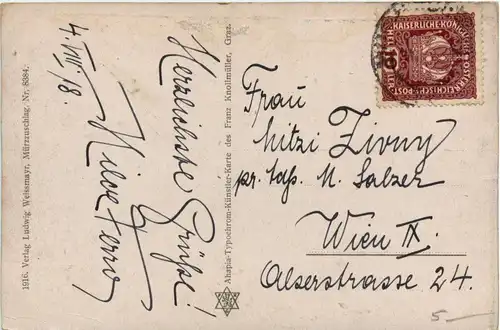 1916. Verlag Ludwig Weissmayr, Mürzzuschlag. Nr. 8384.
4. VIII. 18.
Herzlichste Grüße!
Ahapia-Typochrom-Künstler-Karte des Franz Knollmüller, Graz.
KAISERLICHE KÖNIGLICHE
ÖSTERREICHISCHE POST
15
Frau
Mitzi Zivny
pr. Adr. M. Salzer
Wien IX.
Alserstrasse 24.
5—